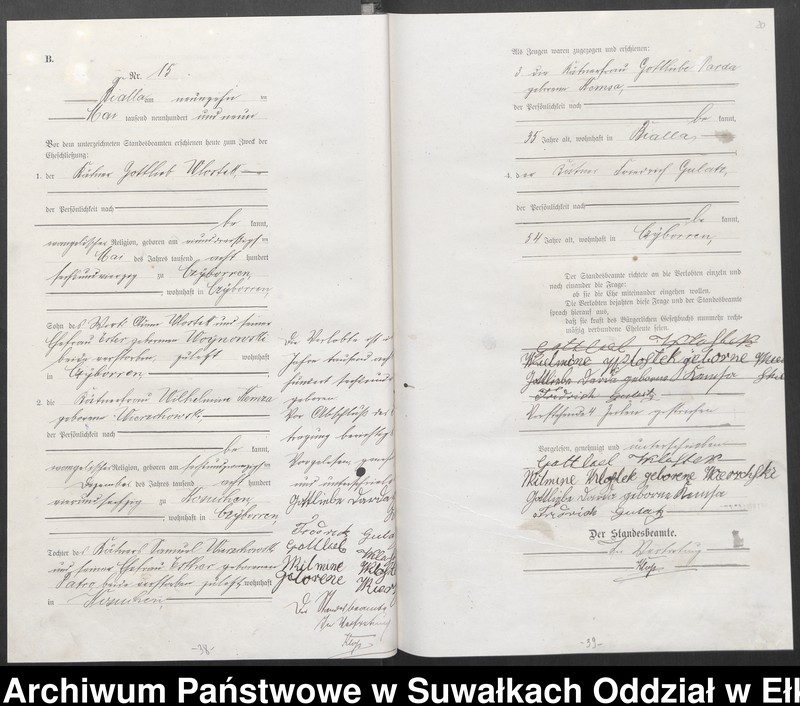 B.
Nr. 15
Bialla am neunzehn ten
Mai tausend neunhundert und neun
Vor dem unterzeichneten Standesbeamten erschienen heute zum Zweck der
Eheschließung:
1. der Kätner Gottlieb Wlostek,
der Persönlichkeit nach
be kannt,
evangelischer Religion, geboren am
Mai des Jahres tausend acht hundert
sechsundvierzig zu Czyborren,
, wohnhaft in Czyborren,
Sohn des Wirth Wlostek und seiner
Ehefrau Ester geborenen Woynowski
beide verstorben, zuletzt wohnhaft
in Czyborren
2. die Kätnerfrau Wilhelmine Kemsa
geborene Wierzchowski.
der Persönlichkeit nach
be kannt,
evangelischer Religion, geboren am
Dezember des Jahres tausend acht hundert
vierundsechzig zu
, wohnhaft in Czyborren,
Tochter des Kätners Samuel
und seiner Ehefrau Esther geborenen
beide verstorben zuletzt wohnhaft
in
Der Verlobte ist
Jahre tausend acht
hundert sechsund
geboren
Vor Abschluß der
tragung berichtigt
Vorgelesen, geneh
und unterschrieben
Gottliebe Darda
Fridrich Gula
Gottlieb
Wilmine
geborene
Der Standesbeamte
In Vertretung
-38-
20
Als Zeugen waren zugezogen und erschienen:
3 die Kätnerfrau Gottliebe Darda
geborene Kemsa,
der Persönlichkeit nach
be kannt,
35 Jahre alt, wohnhaft in Bialla
4. der Kätner Friedrich Gulatz,
der Persönlichkeit nach
be kannt,
54 Jahre alt, wohnhaft in Czyborren,
Der Standesbeamte richtete an die Verlobten einzeln und
nach einander die Frage:
ob sie die Ehe miteinander eingehen wollen.
Die Verlobten bejahten diese Frage und der Standesbeamte
sprach hierauf aus,
daß sie kraft des Bürgerlichen Gesetzbuchs nunmehr recht-
mäßig verbundene Eheleute seien.
Wilmine geborene
Gottliebe Darda geborene Kamsa
Fridrich Gulatz
Vorstehende 4 Zeilen gestrichen
Vorgelesen, genehmigt und unterschrieben
Gottlieb Wlostek
Wilmine Wlostek geborene
Gottliebe Darda geborene Kamsa
Fridrich Gulatz
Der Standesbeamte.
In Vertretung
-39-
Archiwum Państwowe w Suwałkach Oddział w Ełk